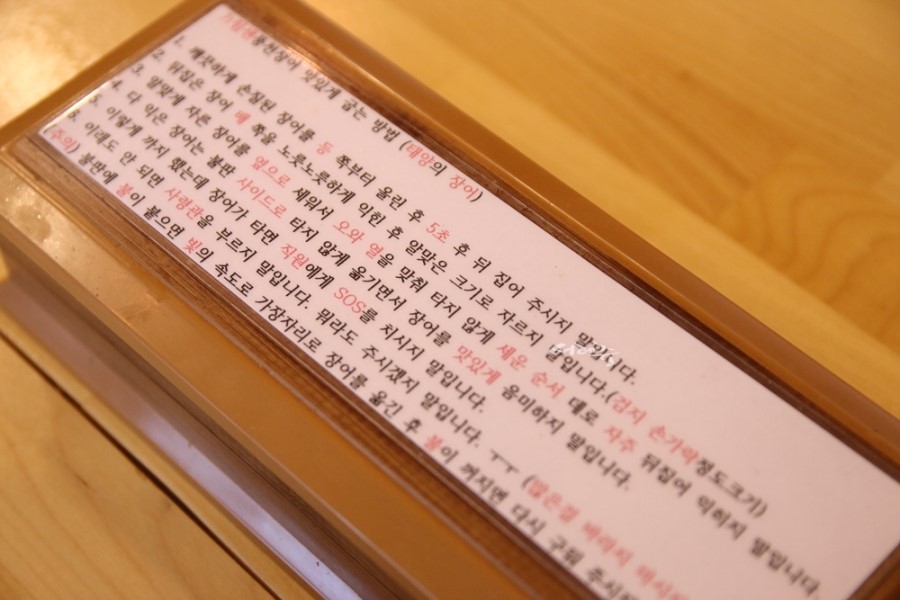 풍천장어 맛있게 굽는 방법 (태양의 장어)
1. 깨끗하게 손질된 장어를 등 쪽부터 올린 후 5초 후 뒤 집어 주시지 말입니다.
2. 뒤집은 장어 배 쪽을 노릇노릇하게 익힌 후 알맞은 크기로 자르지 말입니다.(검지 손가락정도크기)
3. 알맞게 자른 장어를 옆으로 세워서 오와 열을 맞춰 타지 않게 세운 순서 대로 자주 뒤집어 익히지 말입니다.
4. 다 익은 장어는 불판 사이드로 타지 않게 옮기면서 장어를 맛있게 음미하지 말입니다.
5. 이렇게 까지 했는데 장어가 타면 직원에게 SOS를 치시지 말입니다.
6. 이래도 안 되면 사령관을 부르지 말입니다. 뭐라도 주시겠지 말입니다. ㅜㅜ (많은걸 바라지 마시
(주의) 불판에 불이 붙으면 빛의 속도로 가장자리로 장어를 옮긴 후 불이 꺼지면 다시 구워 주시